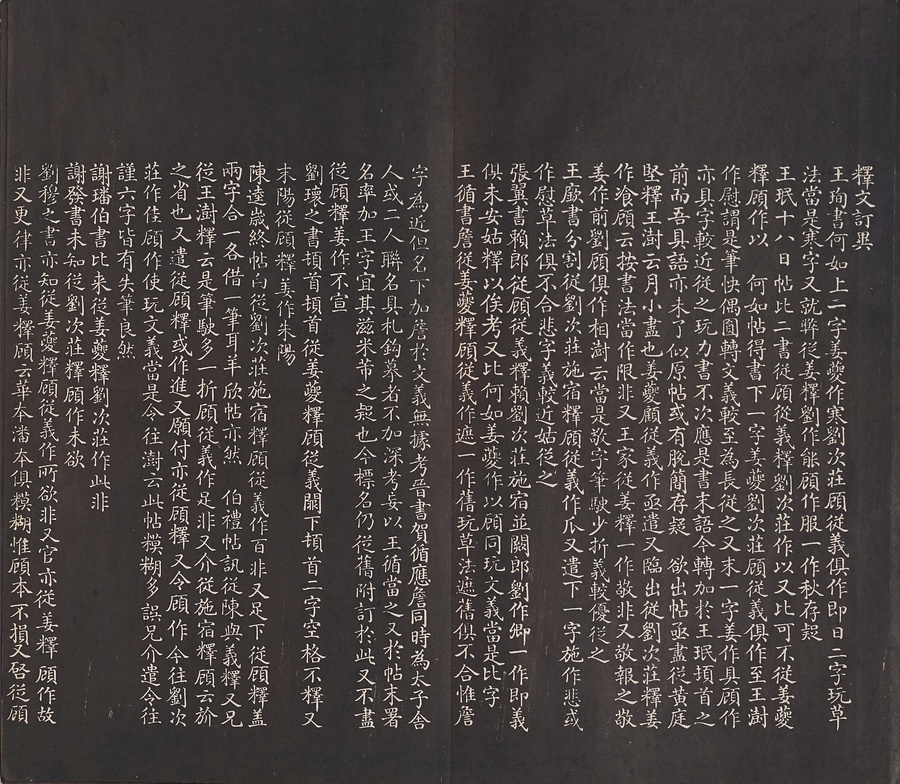 釋文訂異
王珣書何如上二字姜夔作寒劉次莊顧從義俱作即日二字玩草
法當是寒字又就弊從姜釋劉作能顧作服一作秋存疑
王珉十八日帖比二書從顧從義釋劉次莊作以又比可不從姜夔
釋顧作以　何如帖得書下一字姜夔劉次莊顧從義俱作至王澍
作慰謂是筆怏偶圓轉文義較至為長從之又末一字姜作具顧作
亦具字較近從之玩力書不次應是書末語今轉加於王珉頓首之
前而吾具語亦未了似原帖或有脫簡存疑　欲出帖亟盡從黄庭
堅釋王澍云月小盡也姜夔顧從義作亟遣又臨出從劉次莊釋姜
作飡顧云按書法當作限非又王家從姜釋一作敬非又敬報之敬
姜作前劉顧俱作相澍云當是敬字筆駛少折義較優從之
王廞書分割從劉次莊施宿釋顧從義作瓜又遣下一字施作悲或
作慰草法俱不合悲字義較近姑從之
張翼書賴郎從顧從義釋賴劉次莊施宿並闕郎劉作卿一作即義
俱未安姑釋以俟考又比何如姜夔作以顧同玩文義當是比字
王循書詹從姜夔釋顧從義作遮一作舊玩草法遮舊俱不合惟詹
字為近但名下加詹於文義無據考晉書賀循應詹同時為太子舍
人或二人聯名具札鈎摹者不加深考妄以王循當之又於帖末署
名率加王字宜其滋米芾之疑也今標名仍從舊附訂於此又不盡
從顧釋姜作不宣
劉瓌之書頓首頓首從姜夔釋顧從義闕下頓首二字空格不釋又
末陽從顧釋姜作朱陽
陳逵歲終帖白從劉次莊施宿釋顧從義作百非又足下從顧釋盖
兩字合一各借一筆耳羊欣帖亦然　伯禮帖訊從陳與義釋又兄
從王澍釋云是筆駛多一折顧從義作足非又介從施宿釋顧云於
之省也又遣從顧釋或作進又願付亦從顧釋又今顧作令往劉次
莊作佳顧作使玩文義當是令往澍云此帖糢糊多誤兄介遣令往
謹六字皆有失筆良然
謝璠伯書比来從姜夔釋劉次莊作此非
謝發書未知從劉次莊釋顧作未欲
劉穆之書亦知從姜夔釋顧從義作所欲非又官亦從姜釋顧作故
非又更律亦從姜釋顧云華夲潘本俱糢糊惟顧本不損又啓從顧